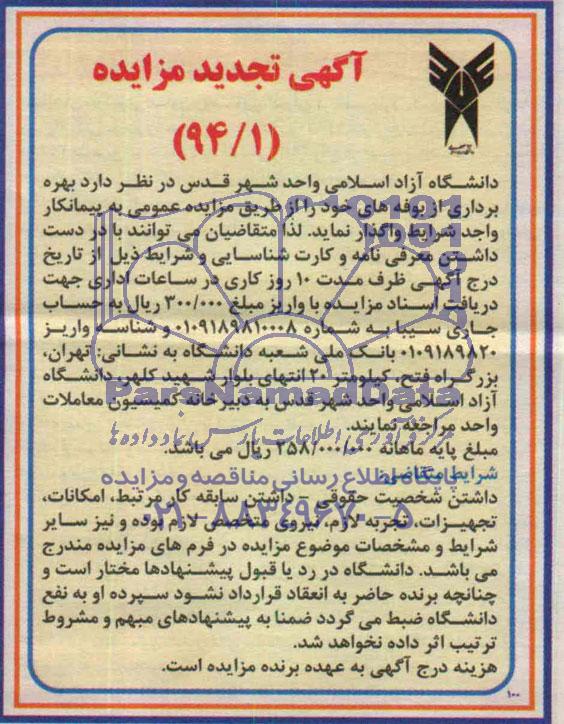 آگهی تجدید مزایده
(۹۴/۱)
دانشگاه آزاد اسلامی واحد شهر قدس در نظر دارد بهره
برداری از بوفه های خود را از طریق مزایده عمومی به پیمانکار
واجد شرایط واگذار نماید. لذا متقاضیان می توانند با در دست
داشتن معرفی نامه و کارت شناسایی و شرایط ذیل از تاریخ
درج آگهی ظرف مدت ۱۰ روز کاری در ساعات اداری جهت
دریافت اسناد مزایده با واریز مبلغ ۳۰۰/۰۰۰ ریال به حساب
جاری سیبا به شماره ۰۱۰۹۱۸۹۸۱۰۰۰۸ و شناسه واریز
۰۱۰۹۱۸۹۸۲۰ بانک ملی شعبه دانشگاه به نشانی: تهران،
بزرگراه فتح، کیلومتر ۲۰ انتهای بلوار شهید کلهر، دانشگاه
آزاد اسلامی واحد شهر قدس به دبیرخانه کمیسیون معاملات
واحد مراجعه نمایند.
مبلغ پایه ماهانه ۲۵۸/۰۰۰/۰۰۰ ریال می باشد.
شرایط متقاضی:
داشتن شخصیت حقوقی - داشتن سابقه کار مرتبط، امکانات،
تجهیزات، تجربه لازم، نیروی متخصص لازم بوده و نیز سایر
شرایط و مشخصات موضوع مزایده در فرم های مزایده مندرج
می باشد. دانشگاه در رد یا قبول پیشنهادها مختار است و
چنانچه برنده حاضر به انعقاد قرارداد نشود سپرده او به نفع
دانشگاه ضبط می گردد ضمنا به پیشنهادهای مبهم و مشروط
ترتیب اثر داده نخواهد شد.
هزینه درج آگهی به عهده برنده مزایده است.
۱۰۰
Pars Namad Data
مرکز فرآوری اطلاعات پارس نماد داده ها
پایگاه اطلاع رسانی مناقصه و مزایده
۰۲۱-۸۸۳۴۹۶۷۰-۵